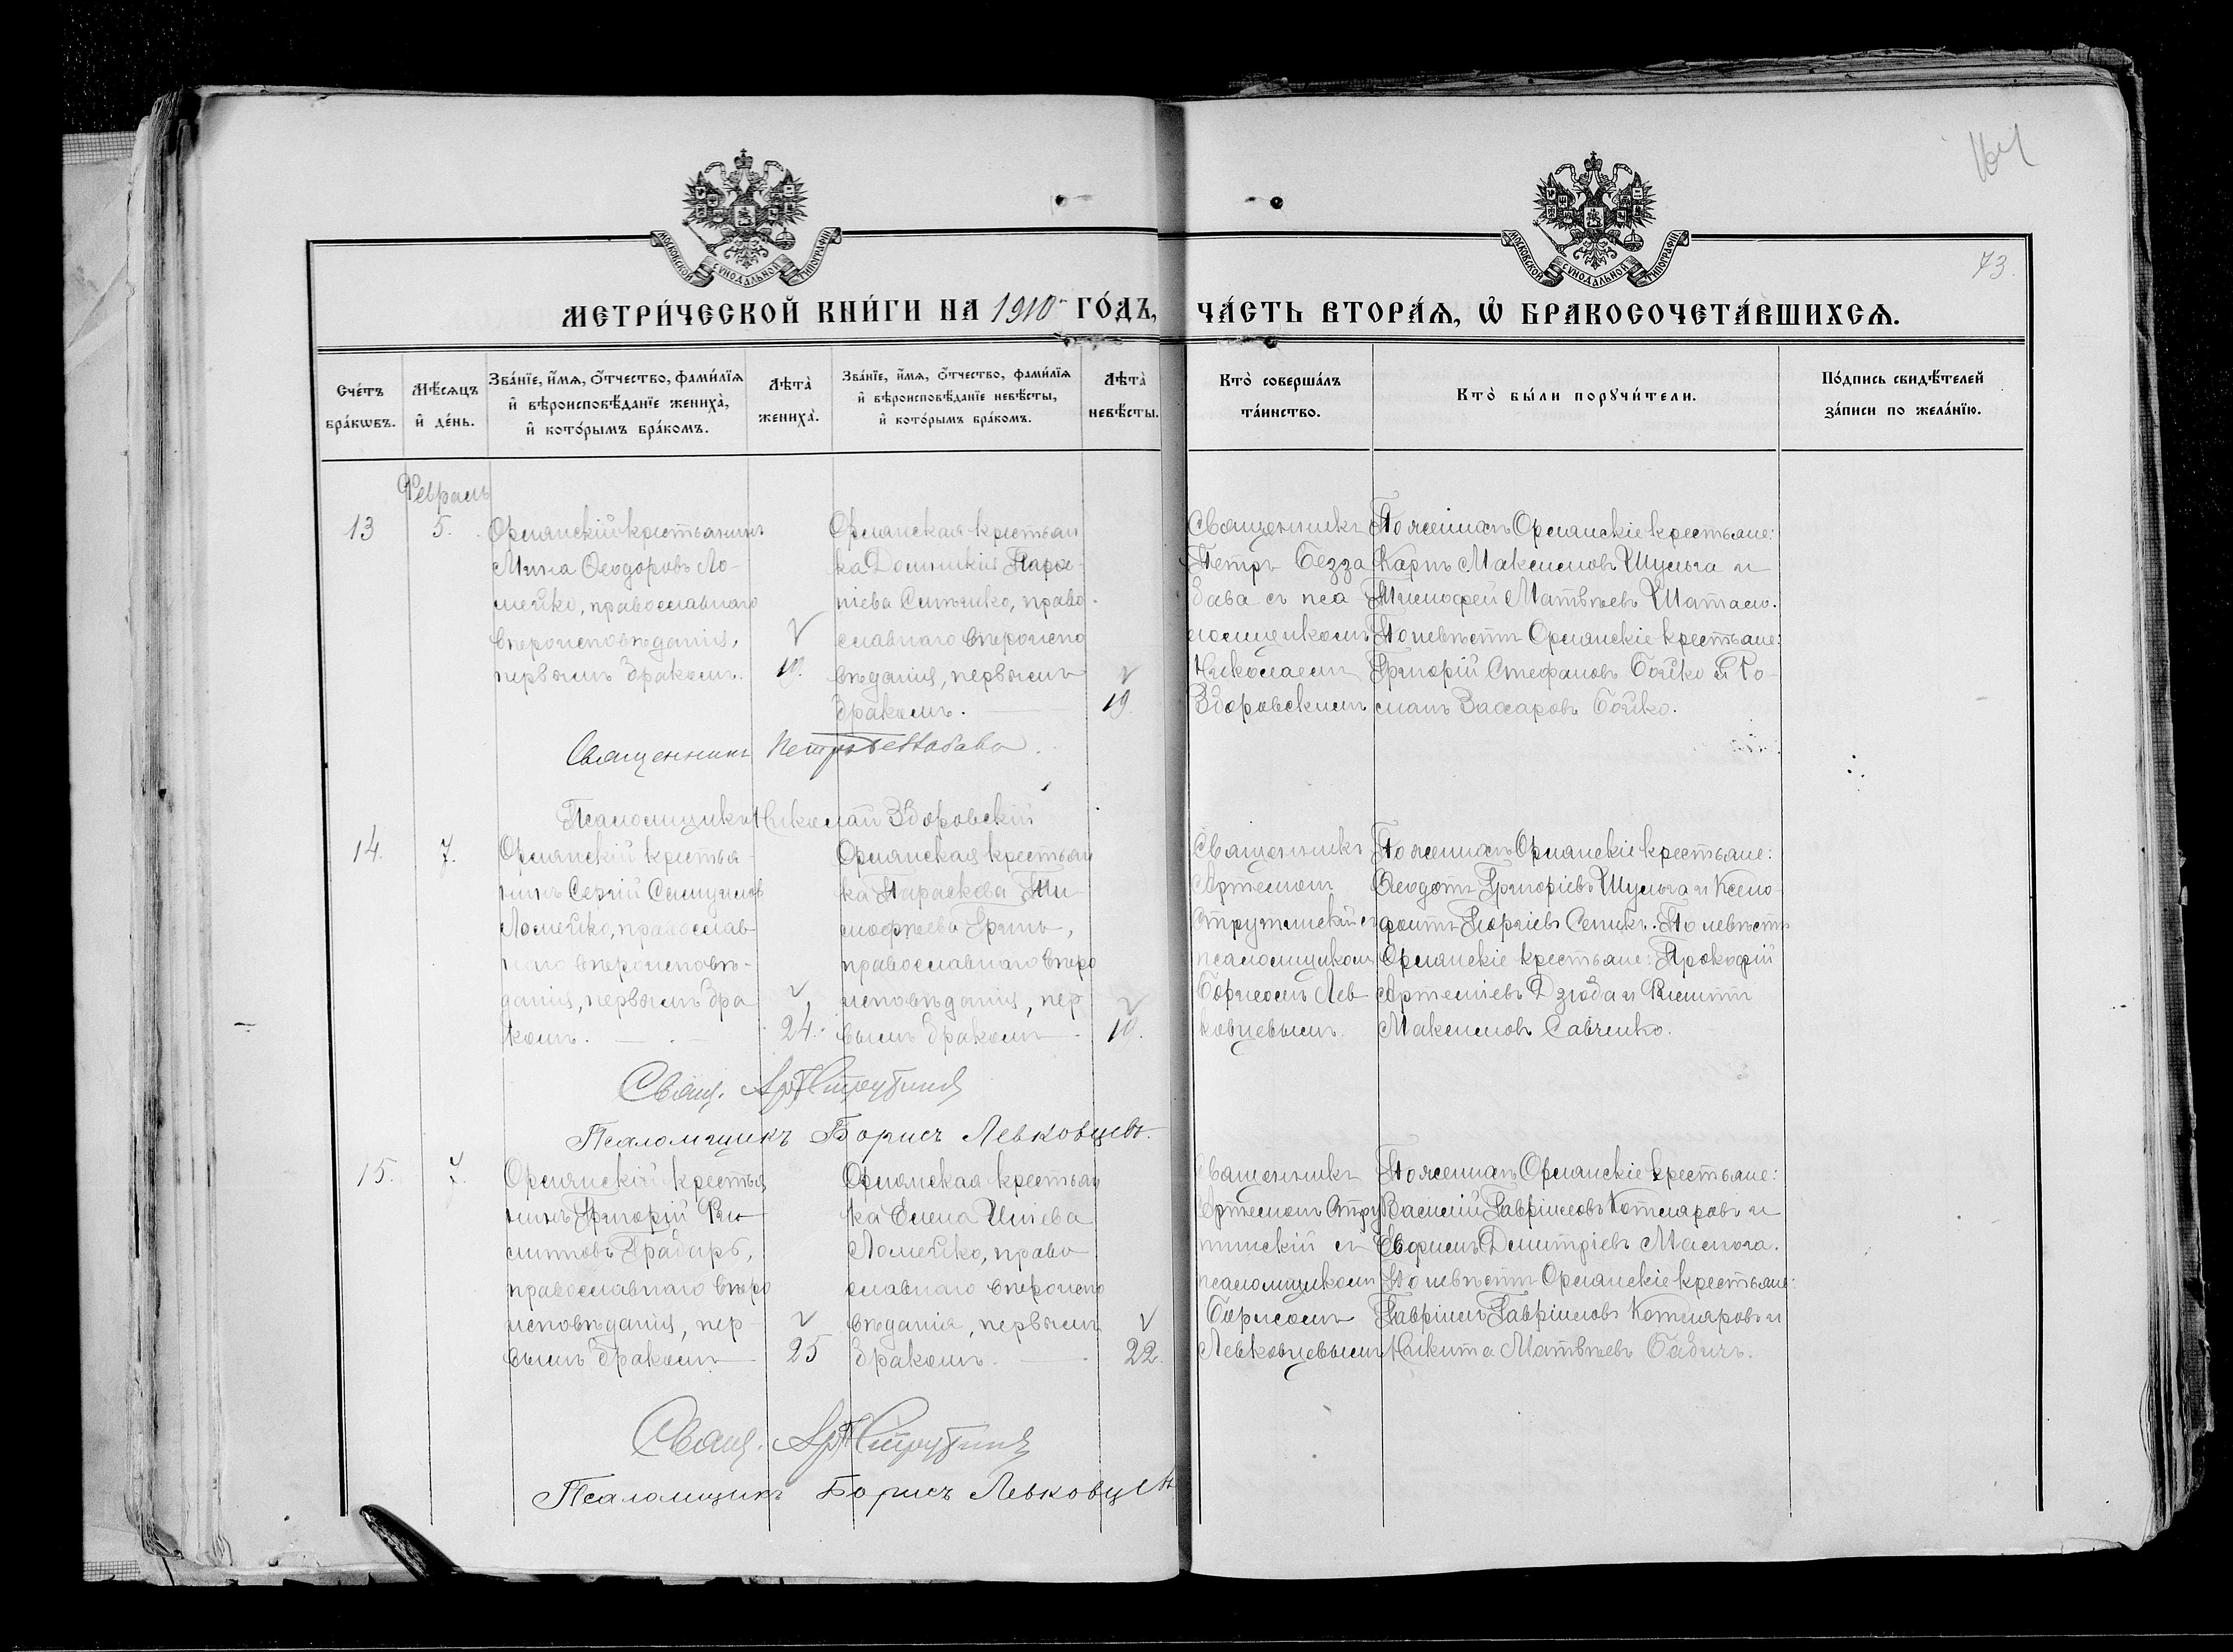 164
73.
МОСКОВСКОЙ СУНОДАЛЬНОЙ ТИПОГРАФІИ
МОСКОВСКОЙ СУНОДАЛЬНОЙ ТИПОГРАФІИ
МЕТРИ́ЧЕСКОЙ КНИ́ГИ НА 1910 ГО́ДЪ, ЧА́СТЬ ВТОРА́Ѧ, Ѽ БРАКОСОЧЕТА́ВШИХСѦ.
Сче́тъ
бра́кѡвъ.
Мѣ́сѧцъ
и҆ де́нь.
Зва́нїе, и҆́мѧ, ѻ҆́тчество, фами́лїѧ
и҆ вѣроисповѣ́данїе жениха̀,
и҆ кото́рымъ бра́комъ.
Лѣта̀
жениха̀.
Зва́нїе, и҆́мѧ, ѻ҆́тчество, фами́лїѧ
и҆ вѣроисповѣ́данїе невѣ́сты,
и҆ кото́рымъ бра́комъ.
Лѣта̀
невѣ́сты.
Кто̀ соверша́лъ
та́инство.
Кто̀ бы́ли порꙋчи́тели.
По́дпись свидѣ́телей
за́писи по жела́нїю.
Февраль
13
5.
Орлянскій крестьянинъ
Мина Ѳеодоровъ Ло-
мейко, православнаго
вѣроисповѣданія,
первымъ бракомъ.
19.
Орлянская крестьян
ка Домникія
православнаго вѣроиспо
вѣданія, первымъ
бракомъ.
19.
Священникъ
Петръ Безза
бава съ пса
ломщикомъ
Николаемъ
Здоровскимъ
По женихѣ Орлянскіе крестьяне:
Карпъ Максимовъ Шульга и
Тимофей Матвѣевъ Шатало.
По невѣстѣ Орлянскіе крестьяне:
Григорій Стефановъ Бойко и Ро-
манъ Захаровъ Бойко.
Священникъ Петръ Беззабава.
Псаломщикъ Николай Здоровскій
14.
7.
Орлянскій крестья-
нинъ Сергій Самуилов
Ломейко, православ-
наго вѣроисповѣ-
данія, первымъ бра
комъ.
24.
Орлянская крестьян
ка Параскева Ти-
мофеева Гринь,
православнаго вѣро
исповѣданія, пер
вымъ бракомъ
19.
Священникъ
Артемонъ
Струтинскій съ
псаломщикомъ
Борисомъ Лев
ковцевымъ.
По женихѣ Орлянскіе крестьяне:
Ѳеодотъ Григоріевъ Шульга и Ксено
фонтъ Георгіевъ Сепикъ. По невѣстѣ
Орлянскіе крестьяне: Прокофій
Артеміевъ Дзюба и Филиппъ
Максимовъ Савченко.
Свящ. Арт Струтинскій
Псаломщикъ Борисъ Левковцевъ.
15.
7.
Орлянскій крестья
нинъ Григорій Фи-
липповъ Грабарь,
православнаго вѣро
исповѣданія, пер-
вымъ бракомъ
25
Орлянская крестьян
ка Елена Ильева
Ломейко, право
славнаго вѣроиспо
вѣданія, первымъ
бракомъ.
22.
Священникъ
Артемонъ Стру
тинскій съ
псаломщикомъ
Борисомъ
Левковцевымъ
По женихѣ Орлянскіе крестьяне:
Василій Гавріиловъ Котляровъ и
Ефимъ Димитріевъ
По невѣстѣ Орлянскіе крестьяне:
Гавріилъ Гавріиловъ Котляровъ и
Никита Матвѣевъ Бабичъ.
Свящ. Арт Струтинскій
Псаломщикъ Борисъ Левковцевъ